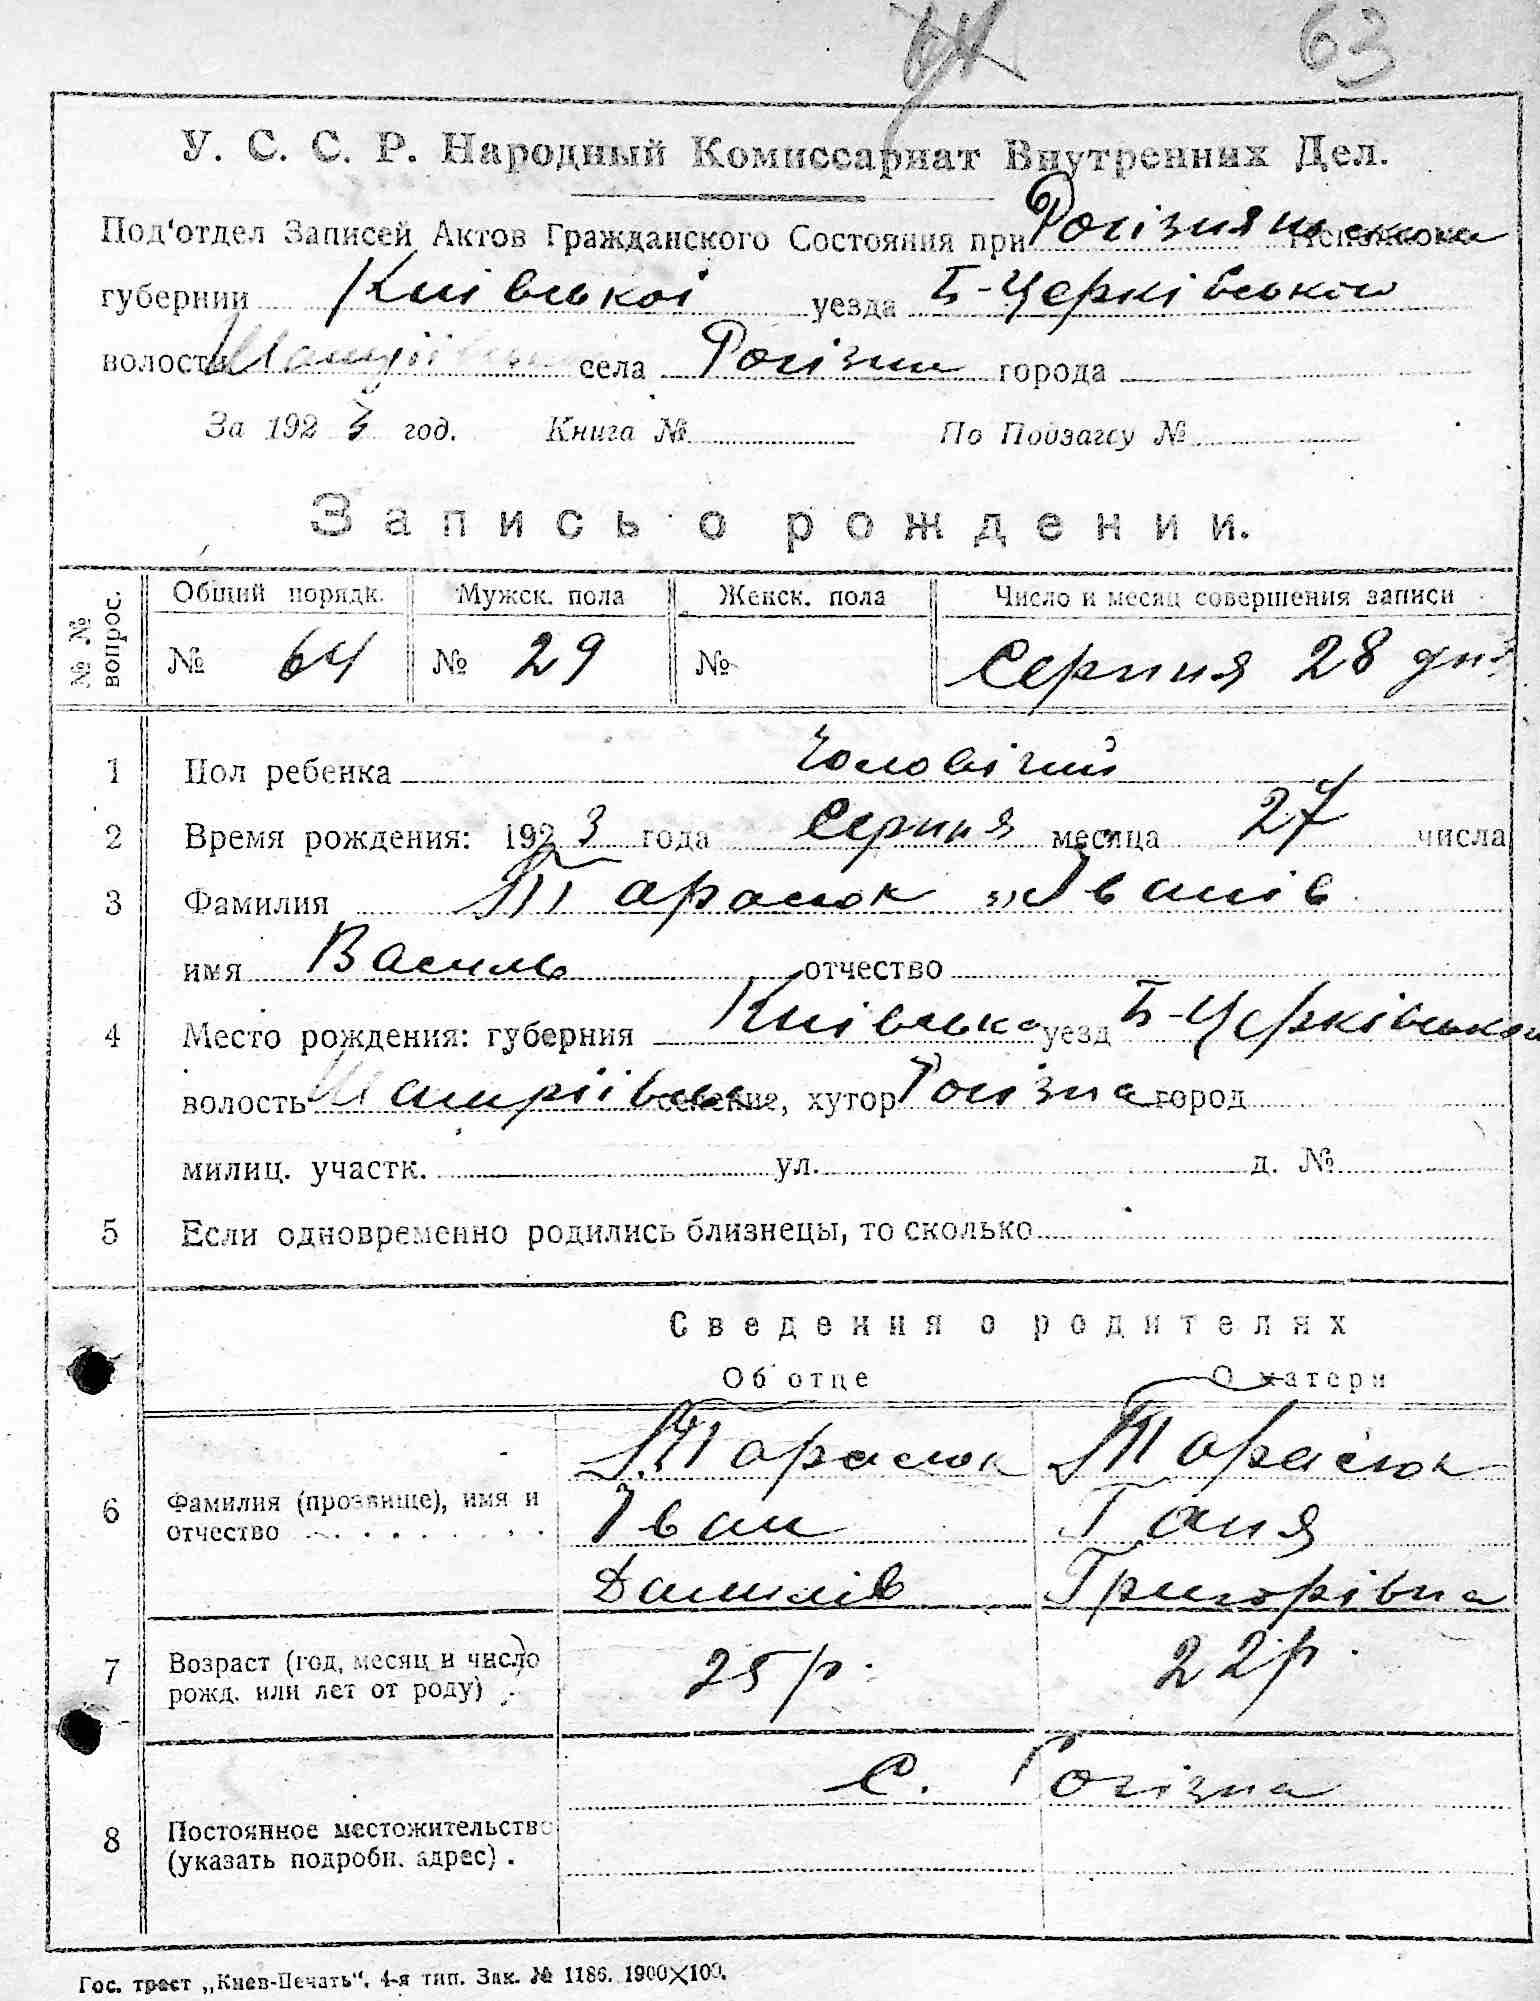 63
У. С. С. Р. Народный Комиссариат Внутренних Дел.
Под'отдел Записей Актов Гражданского Состояния при
губернии Київської уезда Б-Церківської
волости села Рогізни города
За 1923 год. Книга № По Подзагсу №
Запись о рождении.
№ № вопрос. Общий порядк. Мужск. пола Женск. пола Число и месяц совершения записи
№ 64 № 29 № Серпня 28 дня
1 Пол ребенка Чоловічий
2 Время рождения: 1923 года Серпня месяца 27 числа
3 Фамилия Тарасюк „Іванів
имя Василь отчество
4 Место рождения: губерния Київська уезд Б-Церківський
волость селение, хутор Рогізна город
милиц. участк. ул. д. №
5 Если одновременно родились близнецы, то сколько
Сведения о родителях
Об отце О матери
Тарасюк Тарасюк
6 Фамилия (прозвище), имя и отчество Іван Ганя
Данилів Григорівна
7 Возраст (год, месяц и число рожд. или лет от роду) 25 р. 22 р.
с. Рогізна
8 Постоянное местожительство (указать подробн. адрес) .
Гос. трест „Киев-Печать“. 4-я тип. Зак. № 1186. 1900×100.